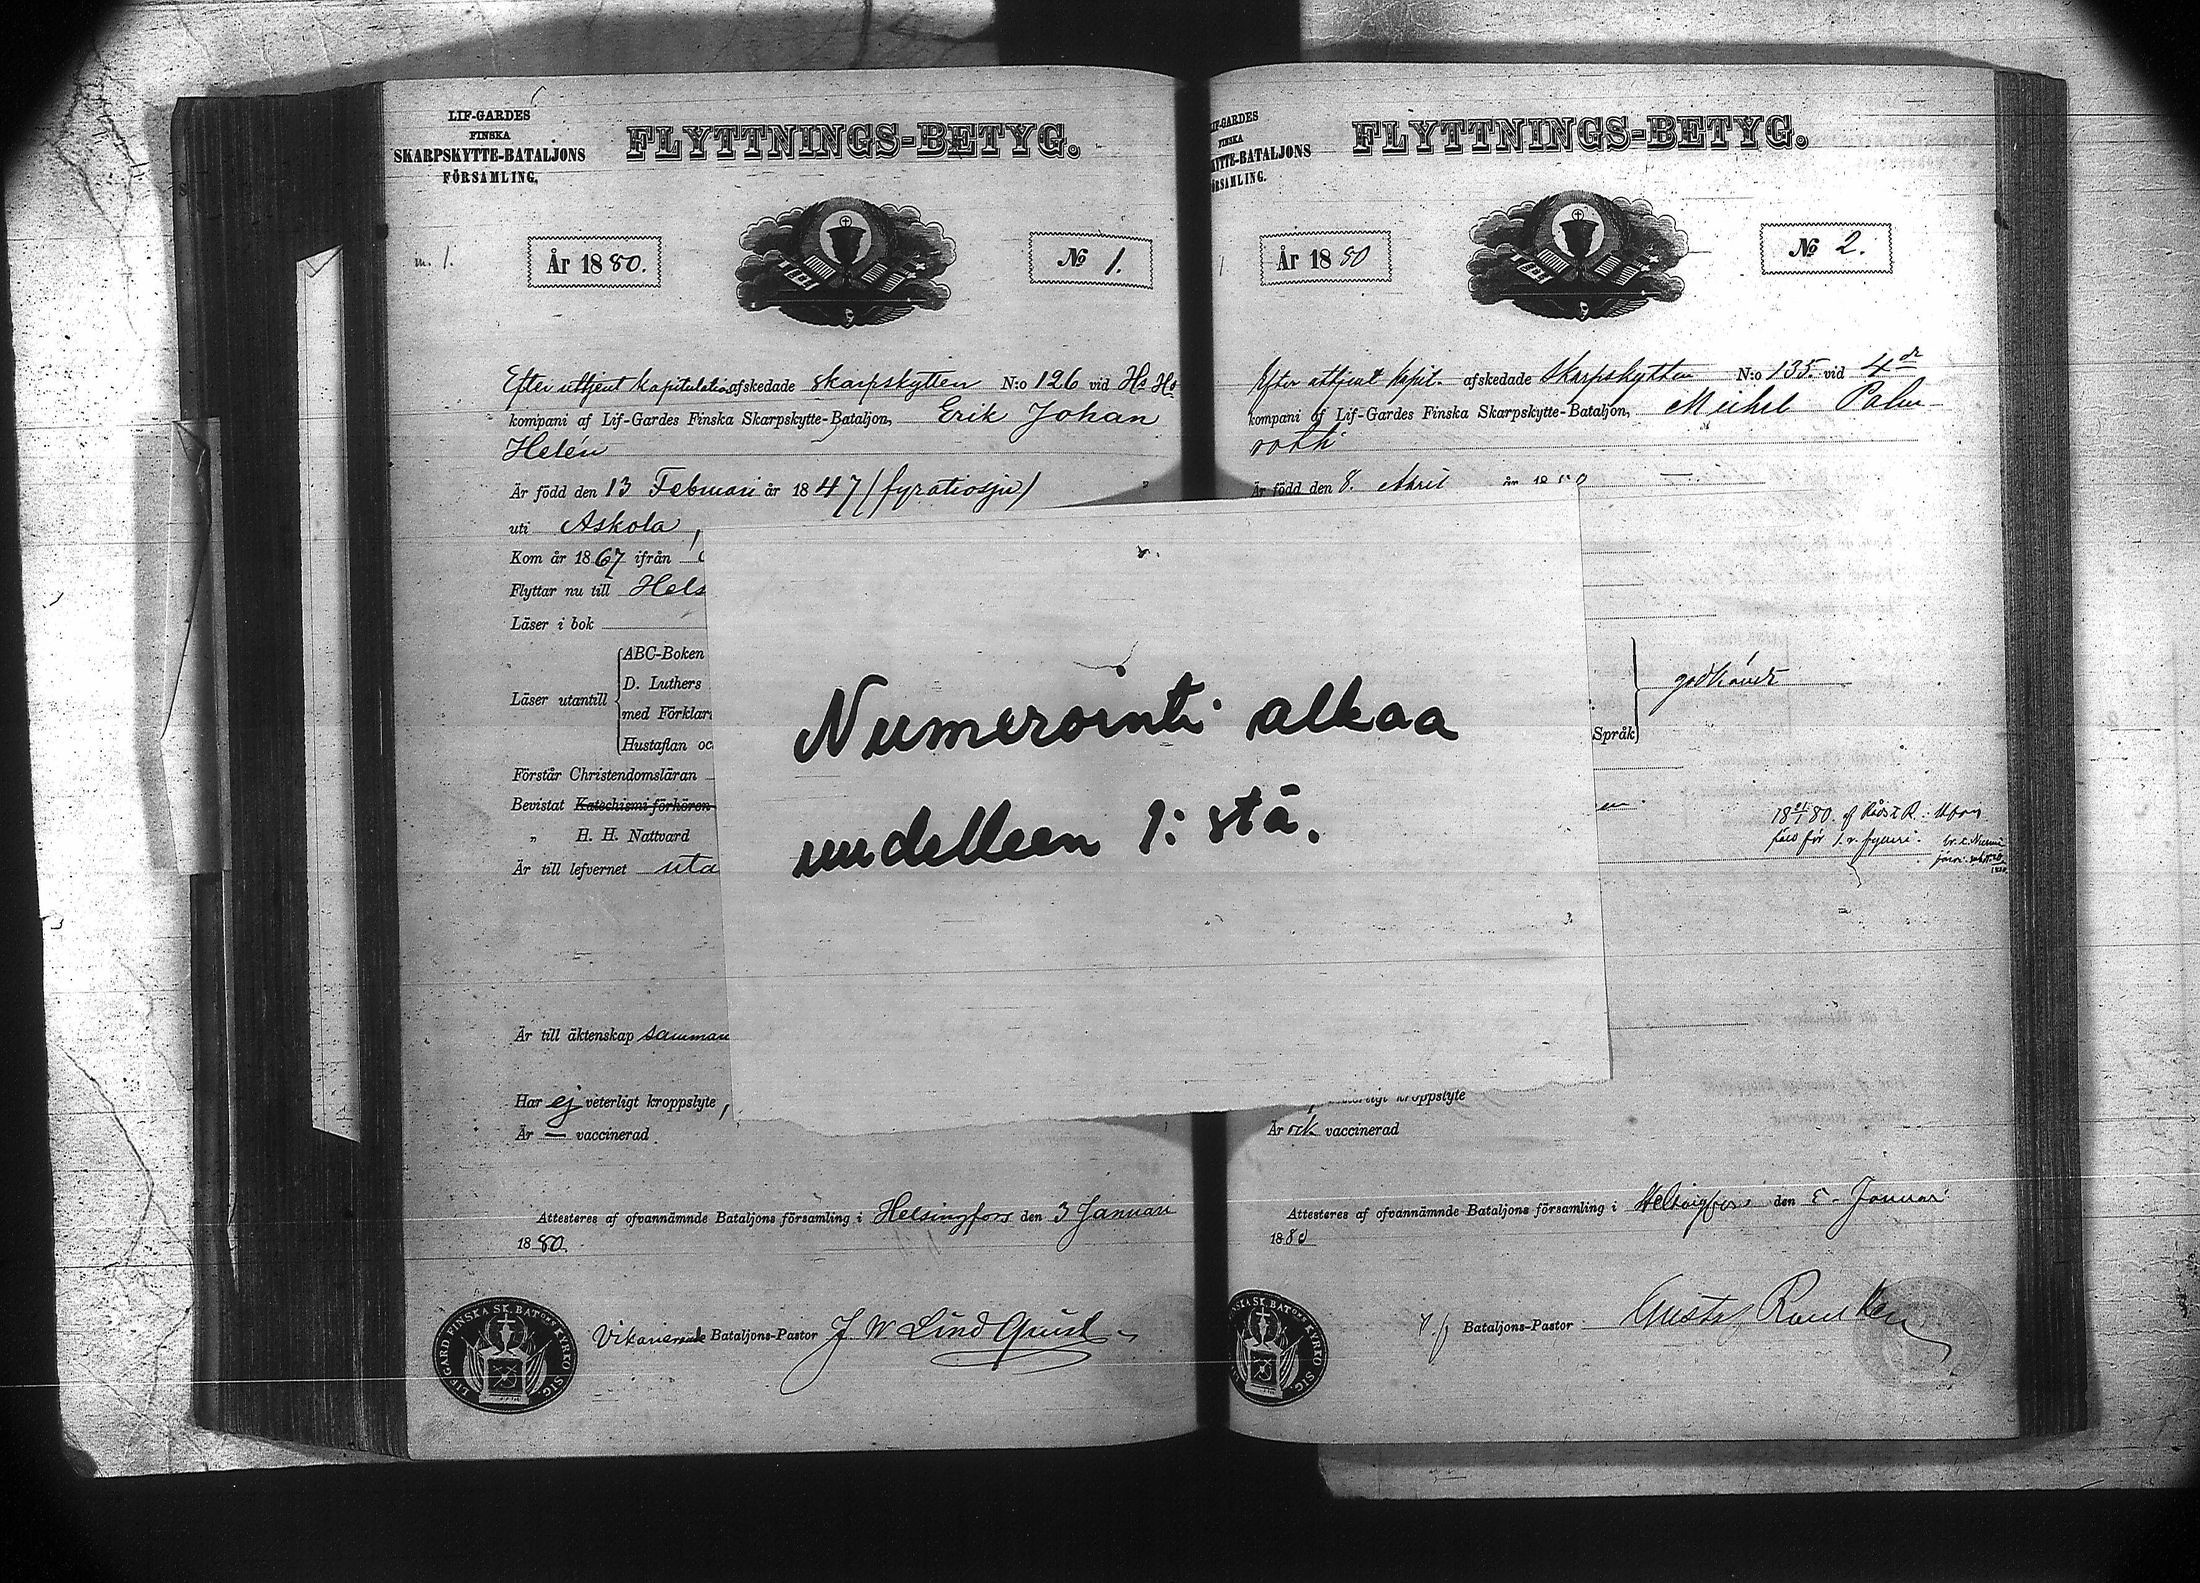 LIF-GARDES
FINSKA
SKARPSKYTTE-BATALJONS
FÖRSAMLING.
FLYTTNINGS-BETYG.
m. 1.
År 1880.
№ 1.
Efter uttjent kapitulation afskedade skarpskytten N:o 126 vid Hs Hs
kompani af Lif-Gardes Finska Skarpskytte-Bataljon, Erik Johan
Helén
Är född den 13 Februari år 1847 (fyratiosju)
uti Askola,
Kom år 1867 ifrån
Flyttar nu till Hels
Läser i bok
Läser utantill
ABC-Boken
D. Luthers
med Förklar
Hustaflan oc
Förstår Christendomsläran
Bevistat Katechismi förhören
„ H. H. Nattvard
Är till lefvernet uta
Är till äktenskap samman
Har ej veterligt kroppslyte,
Är — vaccinerad
Attesteras af ofvannämnde Bataljons församling i Helsingfors den 3 Januari
1880.
LIF.GARD FINSKA SK.BATONS KYRKO SIG.
Vikarierande Bataljons-Pastor J W Lindqvist
Numerointi alkaa
uudelleen 1:stä.
LIF-GARDES
FINSKA
YTTE-BATALJONS
ÖRSAMLING.
FLYTTNINGS-BETYG.
År 1880
№ 2.
Efter uttjent kapit. afskedade Skarpskytten N:o 135. vid 4de
kompani af Lif-Gardes Finska Skarpskytte-Bataljon, Michel Palm
roth
Är född den 8. April år 18
Språk
godkändt
en.
kroppslyte
Är ock vaccinerad
Attesteras af ofvannämnde Bataljons församling i Helsingfors den 5 Januari
1880
Bataljons-Pastor Gustaf